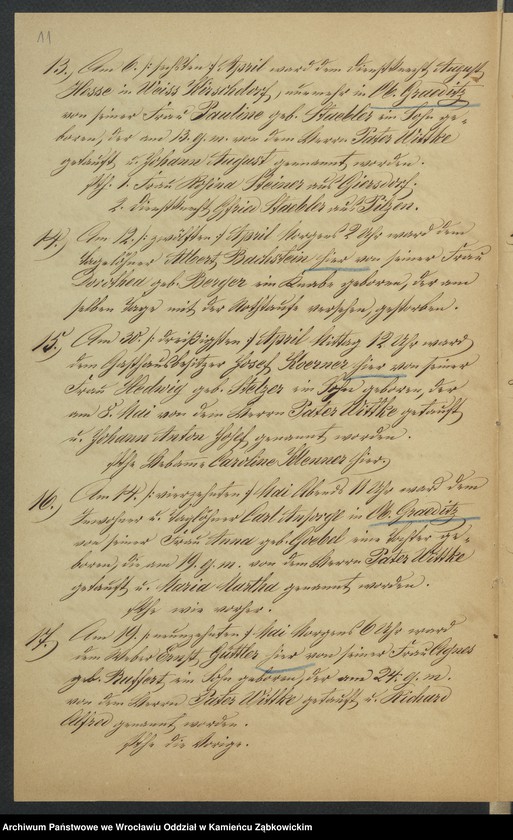 11
13., Am 6. /: sechsten :/ April ward dem Dienstknecht August
Hesse in Weiss Kirschdorf, nunmehr in Ob. Graeditz
von seiner Frau Pauline geb. Staebler ein Sohn ge-
boren, der am 13. q. m. von dem Herrn Pater Wittke
getauft u. Johann August genannt worden.
Pth: 1. Frau Rosina Steiner aus Giersdorf.
2. Dienstknecht Gfried Staebler aus Pilzen.
14.) Am 12. /: zwölften :/ April Morgens 2 Uhr ward dem
Tagelöhner Albert Bachstein hier von seiner Frau
Dorothea geb. Berger ein Knabe geboren, der am
selben Tage mit der Nothtaufe versehen, gestorben.
15.) Am 30. /: dreißigsten :/ April Mittag 12 Uhr ward
dem Gasthausbesitzer Josef Koerner hier von seiner
Frau Hedwig geb. Belzer ein Sohn geboren, der
am 8. Mai von dem Herrn Pater Wittke getauft
u. Johann Anton Josef genannt worden.
Pthe Hebame Caroline hier.
16.) Am 14. /: vierzehnten :/ Mai Abends 11 Uhr ward dem
Inwohner u. Taglöhner Carl Ansorge in Ob. Graeditz
von seiner Frau Anna geb. Goebel eine Tochter ge-
boren, die am 19. q. m. von dem Herrn Pater Wittke
getauft u. Maria Martha genannt worden.
Pthe wie vorher.
17.) Am 19. /: neunzehnten :/ Mai Morgens 6 Uhr ward
dem Weber Ernst Güttler hier von seiner Frau Agnes
geb. Ruffert ein Sohn geboren, der am 24. q. m.
von dem Herrn Pater Wittke getauft u. Richard
Alfred genannt worden.
Pthe die Vorige.
Archiwum Państwowe we Wrocławiu Oddział w Kamieńcu Ząbkowickim